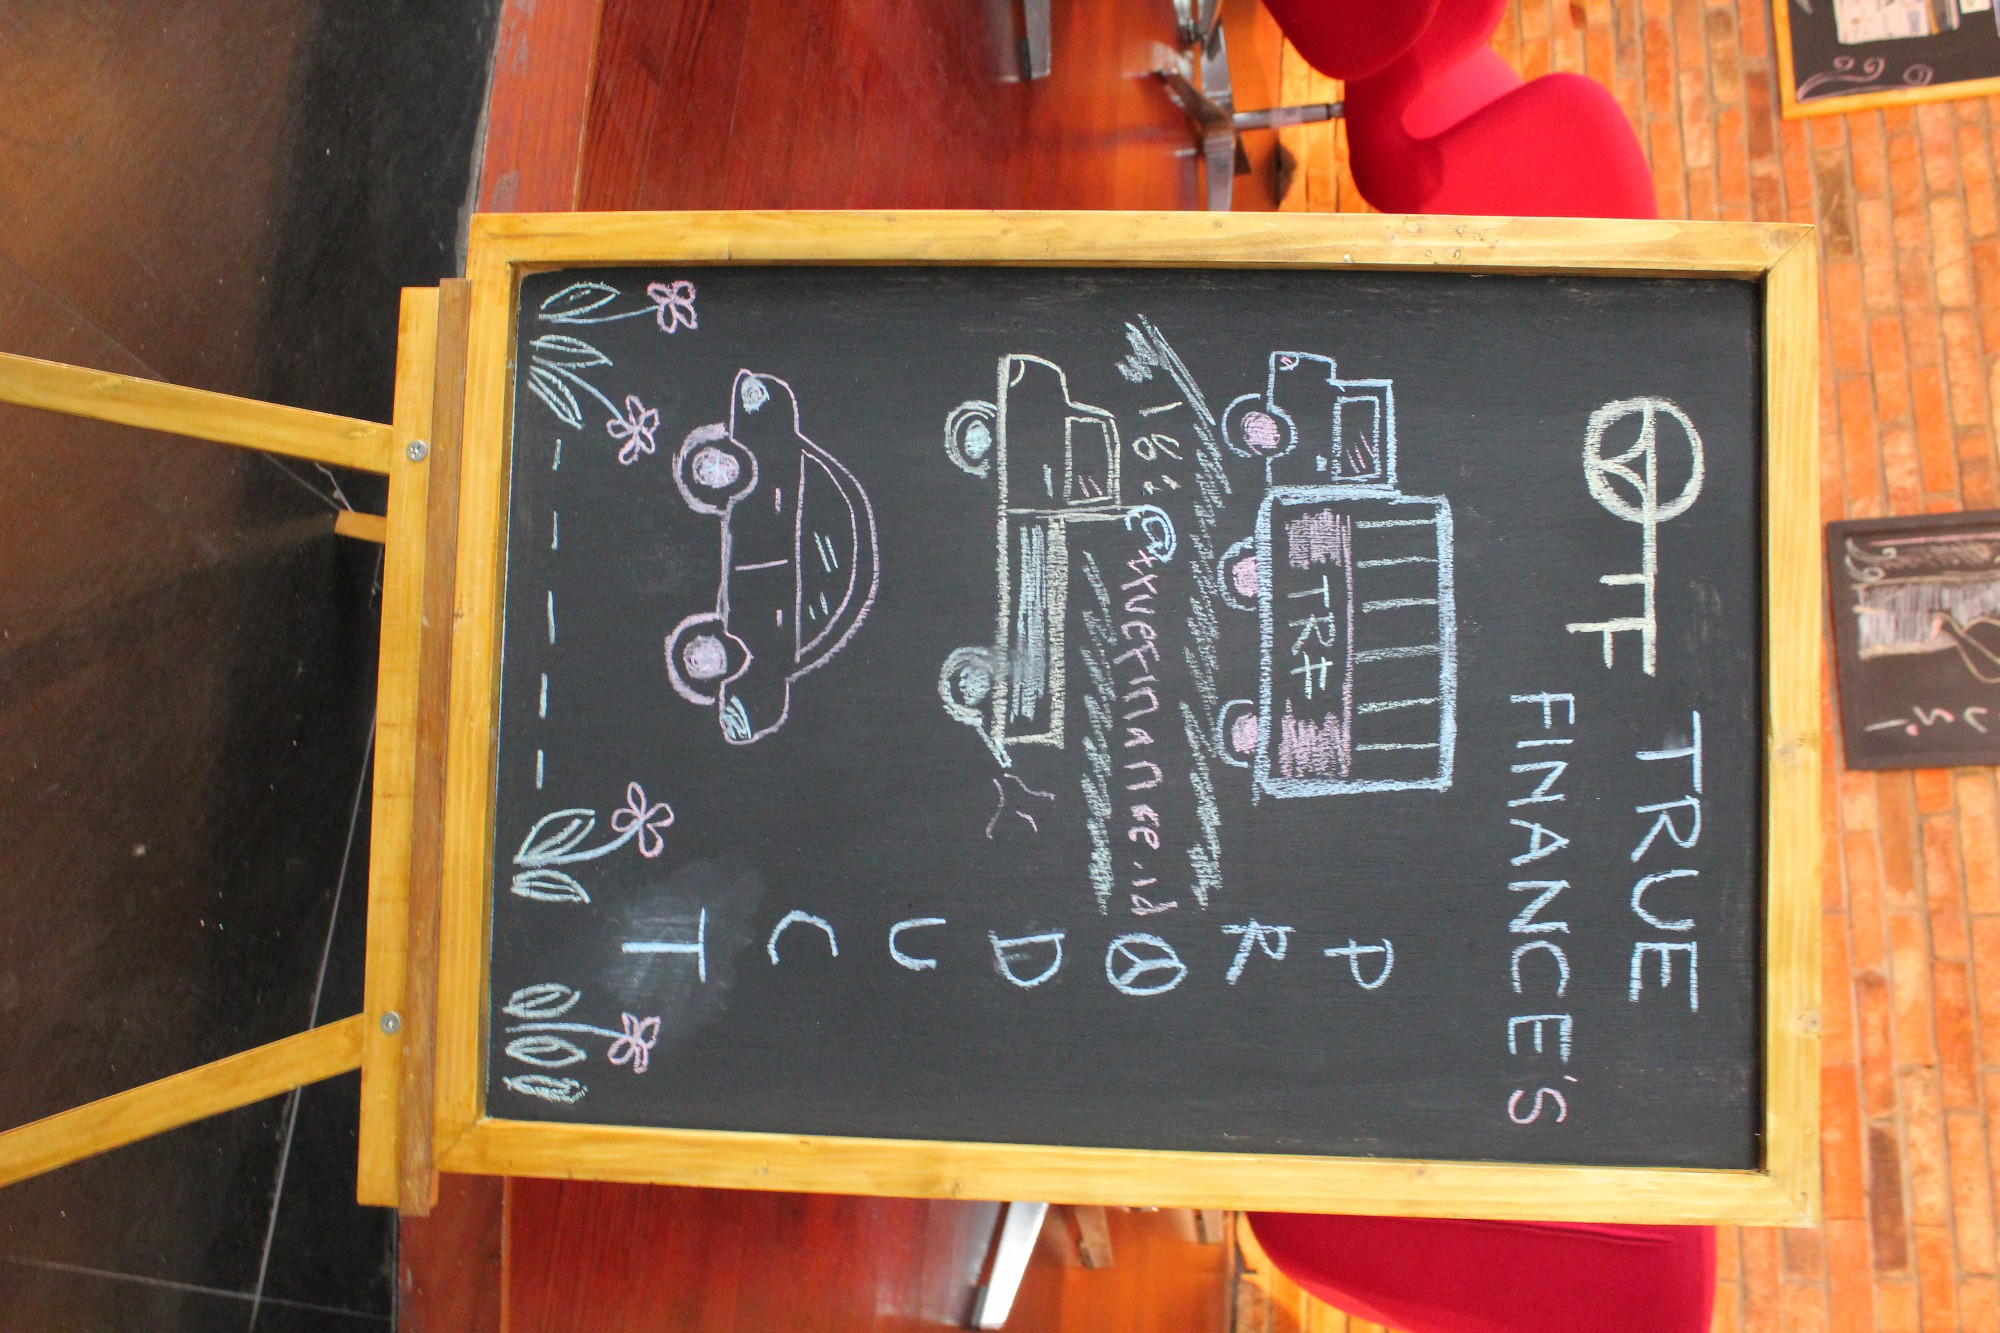 TRUE
FINANCE'S
TRF
IG: @truefinance.id
PRODUCT